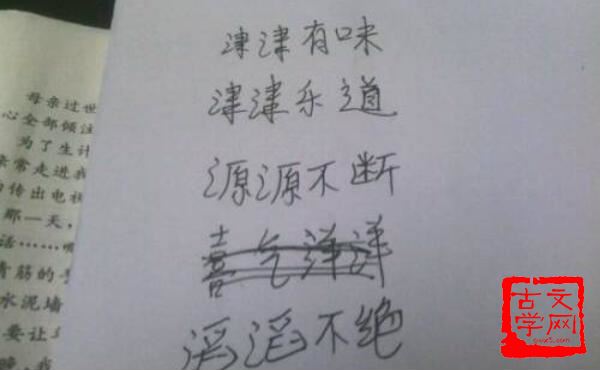 津津有味
津津乐道
源源不断
喜气洋洋
滔滔不绝
母亲过世
心全部倾注
为了生计
亲常走进我
传出电视
那一天，
话……
青筋的手
水泥墙
要让
晚，我
古文学网